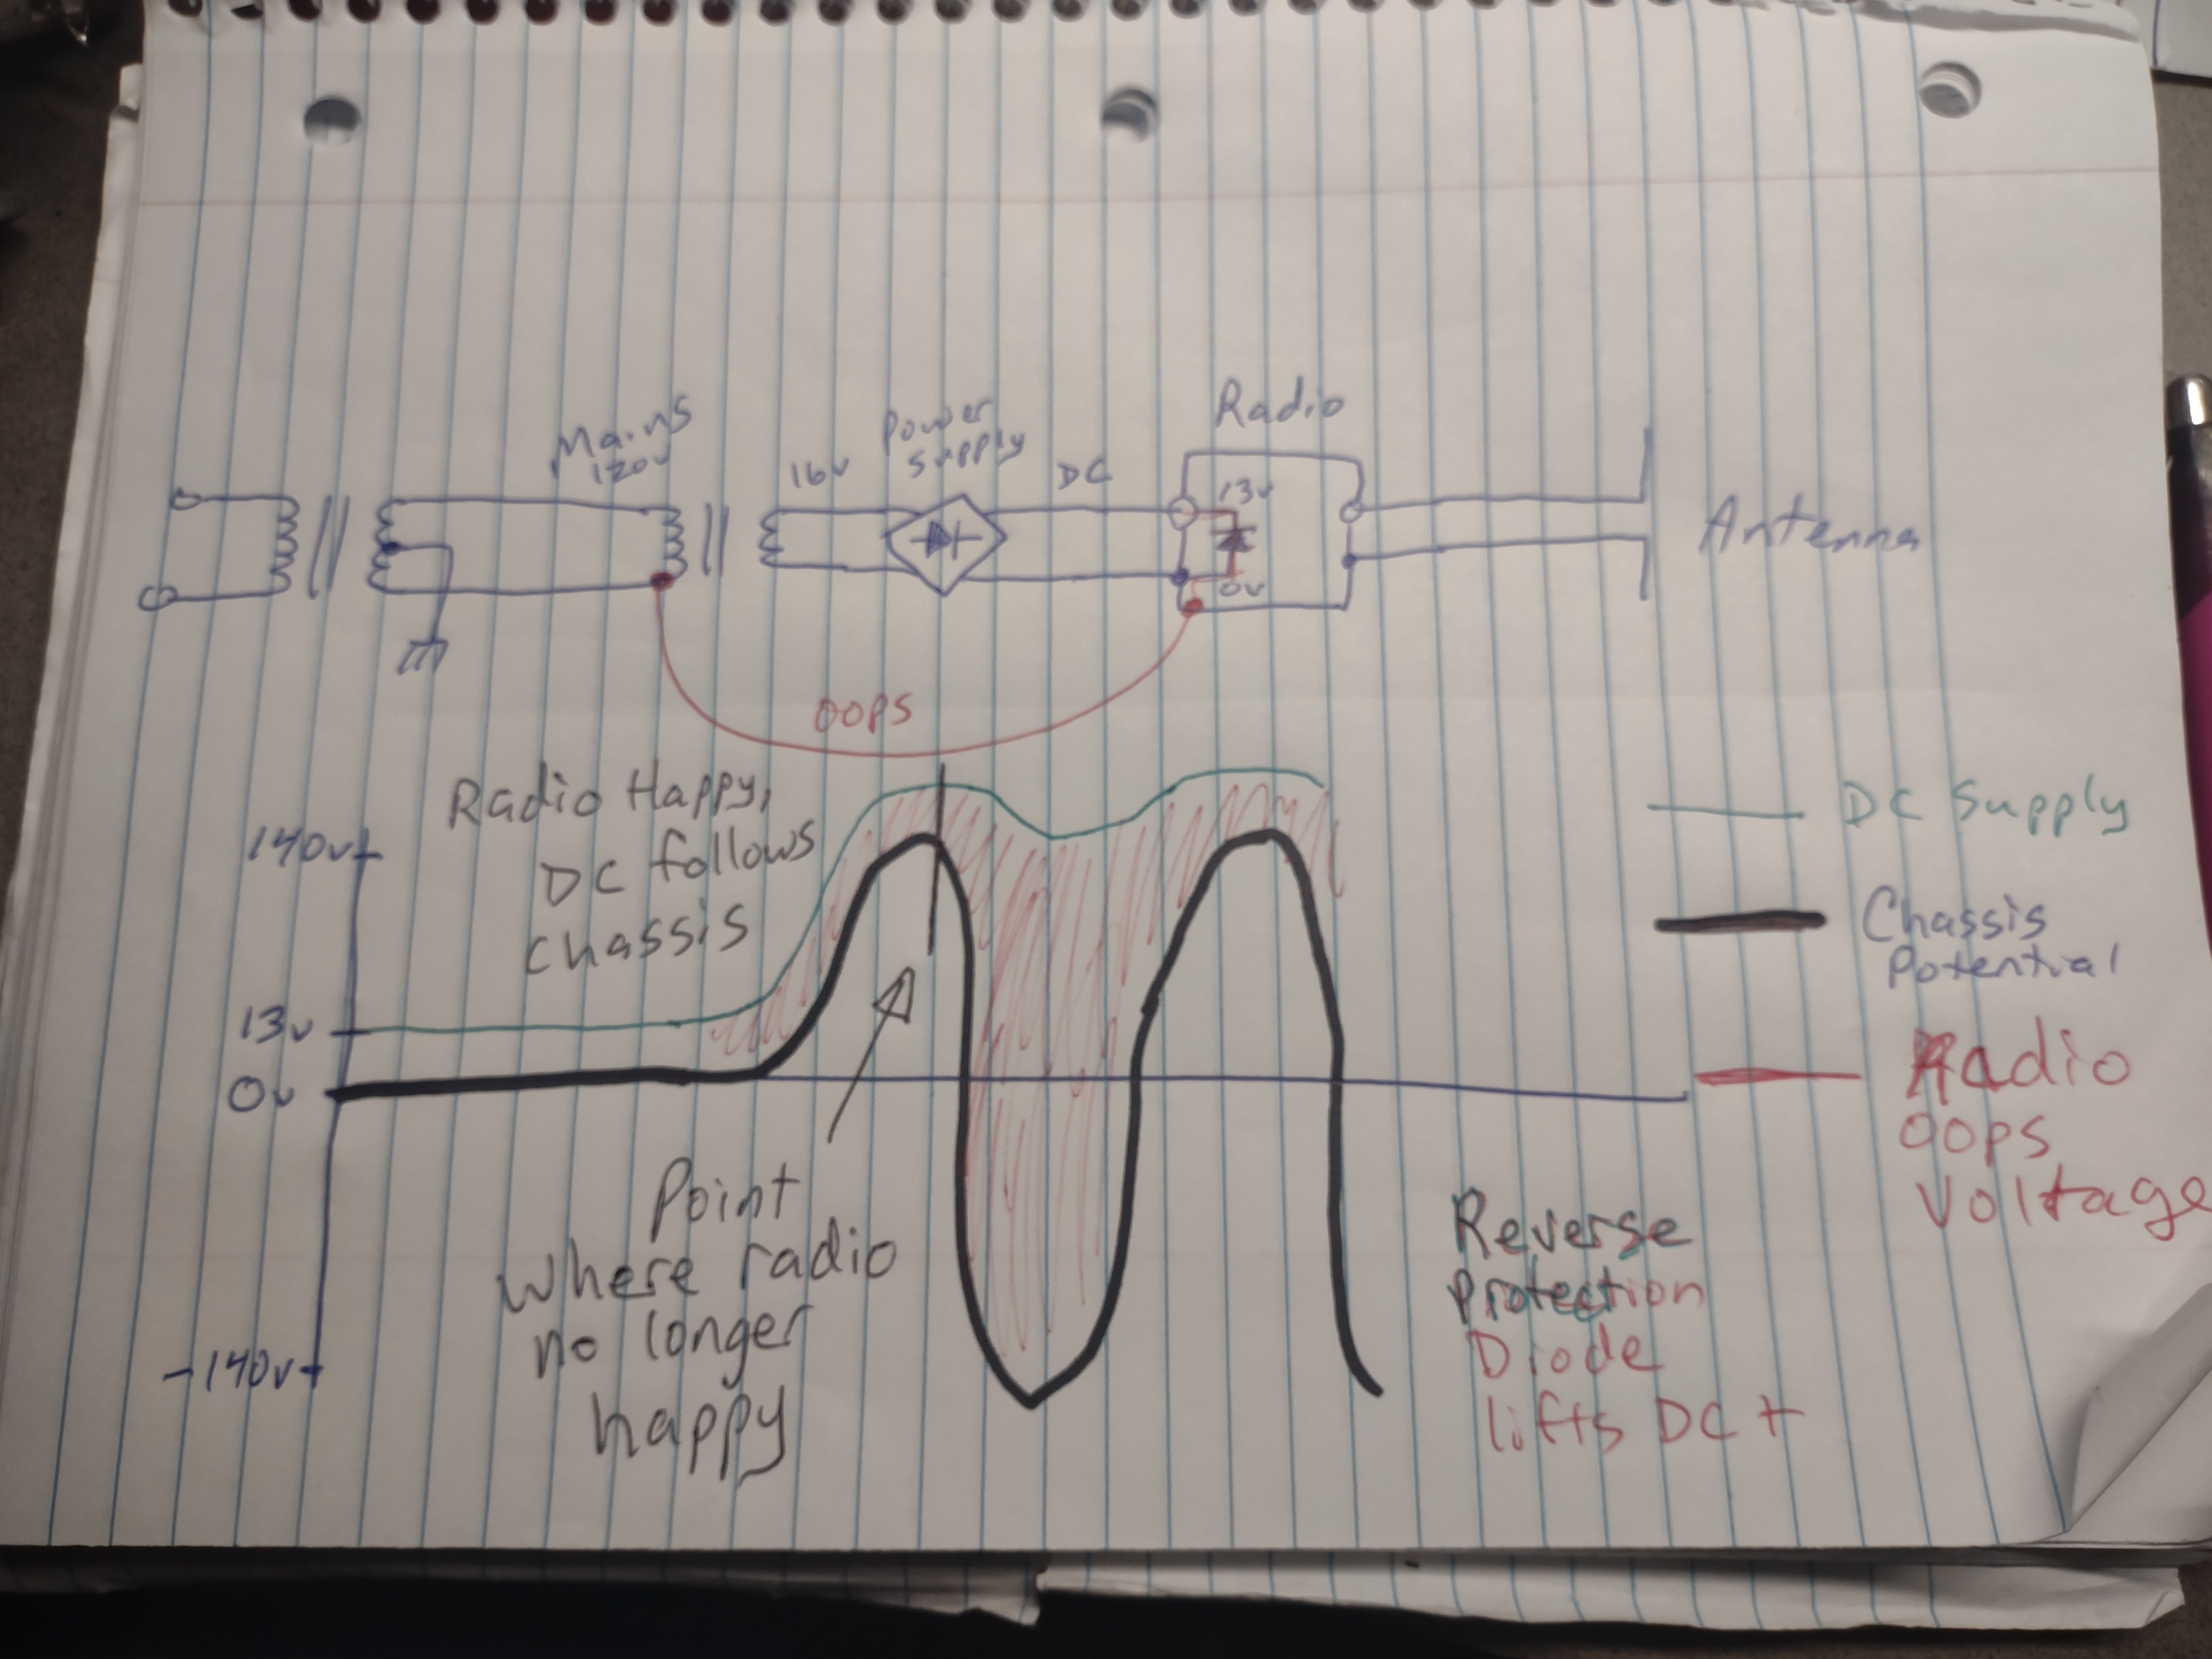 Radio
Mains
120v
16v
Power
Supply
DC
13v
0v
Antenna
OOPS
Radio Happy,
DC follows
chassis
140v
13v
0v
-140v
DC Supply
Chassis
Potential
Radio
OOPS
Voltage
Point
where radio
no longer
happy
Reverse
Protection
Diode
lifts DC+